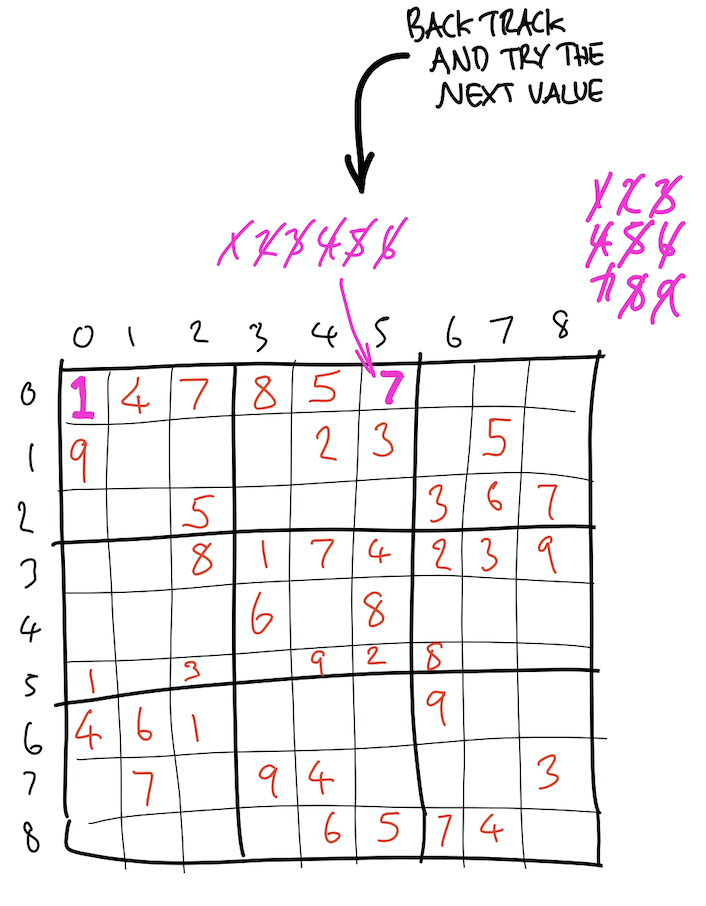 BACK TRACK
AND TRY THE
NEXT VALUE
1 2 3 4 5 6
1 2 3
4 5 6
7 8 9
0 1 2 3 4 5 6 7 8
0 1 4 7 8 5 7
1 9 2 3 5
2 5 3 6 7
3 8 1 7 4 2 3 9
4 6 8
5 1 3 9 2 8
6 4 6 1 9
7 7 9 4 3
8 6 5 7 4